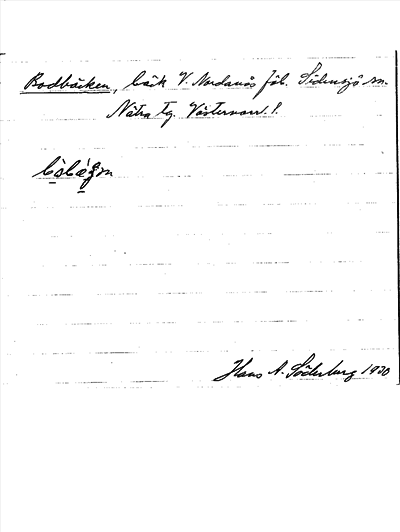 Bodbäcken, bäck V. Nordanås fjb. Sidensjö sn.
Nätra tg. Västernorr. l.
Hans A. Söderburg 1930